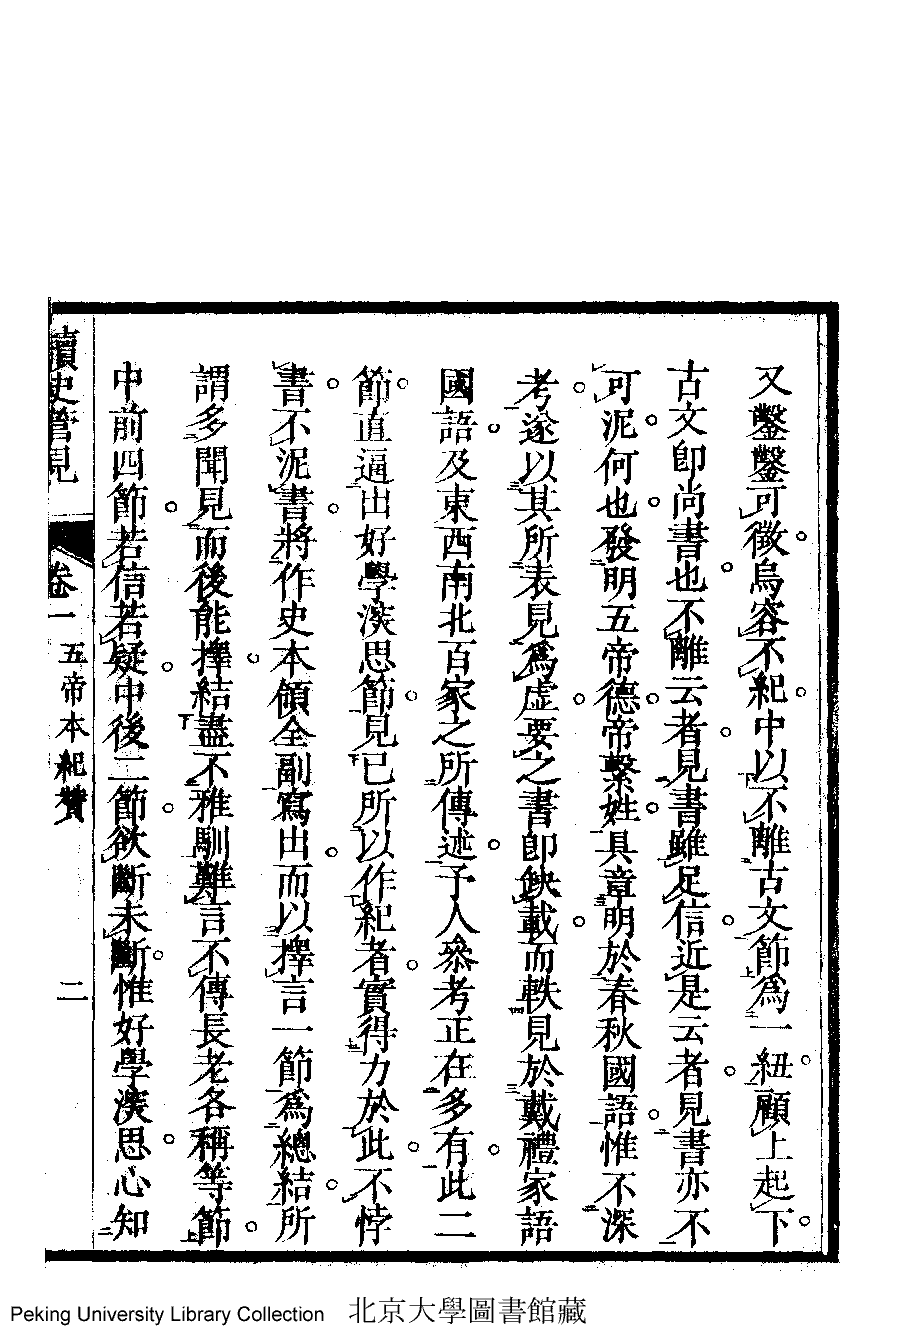 又鑿鑿可徵烏容不紀中以不離古文節爲一紐顧上起下
古文卽尚書也不離云者見書雖足信近是云者見書亦不
可泥何也發明五帝德帝繫姓具章明於春秋國語惟不深
考遂以其所表見爲虛要之書卽缺載而軼見於戴禮家語
國語及東西南北百家之所傳述予人叅考正在多有此二
節直逼出好學深思節見已所以作紀者實得力於此不悖
書不泥書將作史本領全副寫出而以擇言一節爲總結所
謂多聞見而後能擇結盡不雅馴難言不傳長老各稱等節
中前四節若信若疑中後二節欲斷未斷惟好學深思心知
讀史管見
卷一
五帝本紀贊
二
Peking University Library Collection 北京大學圖書館藏